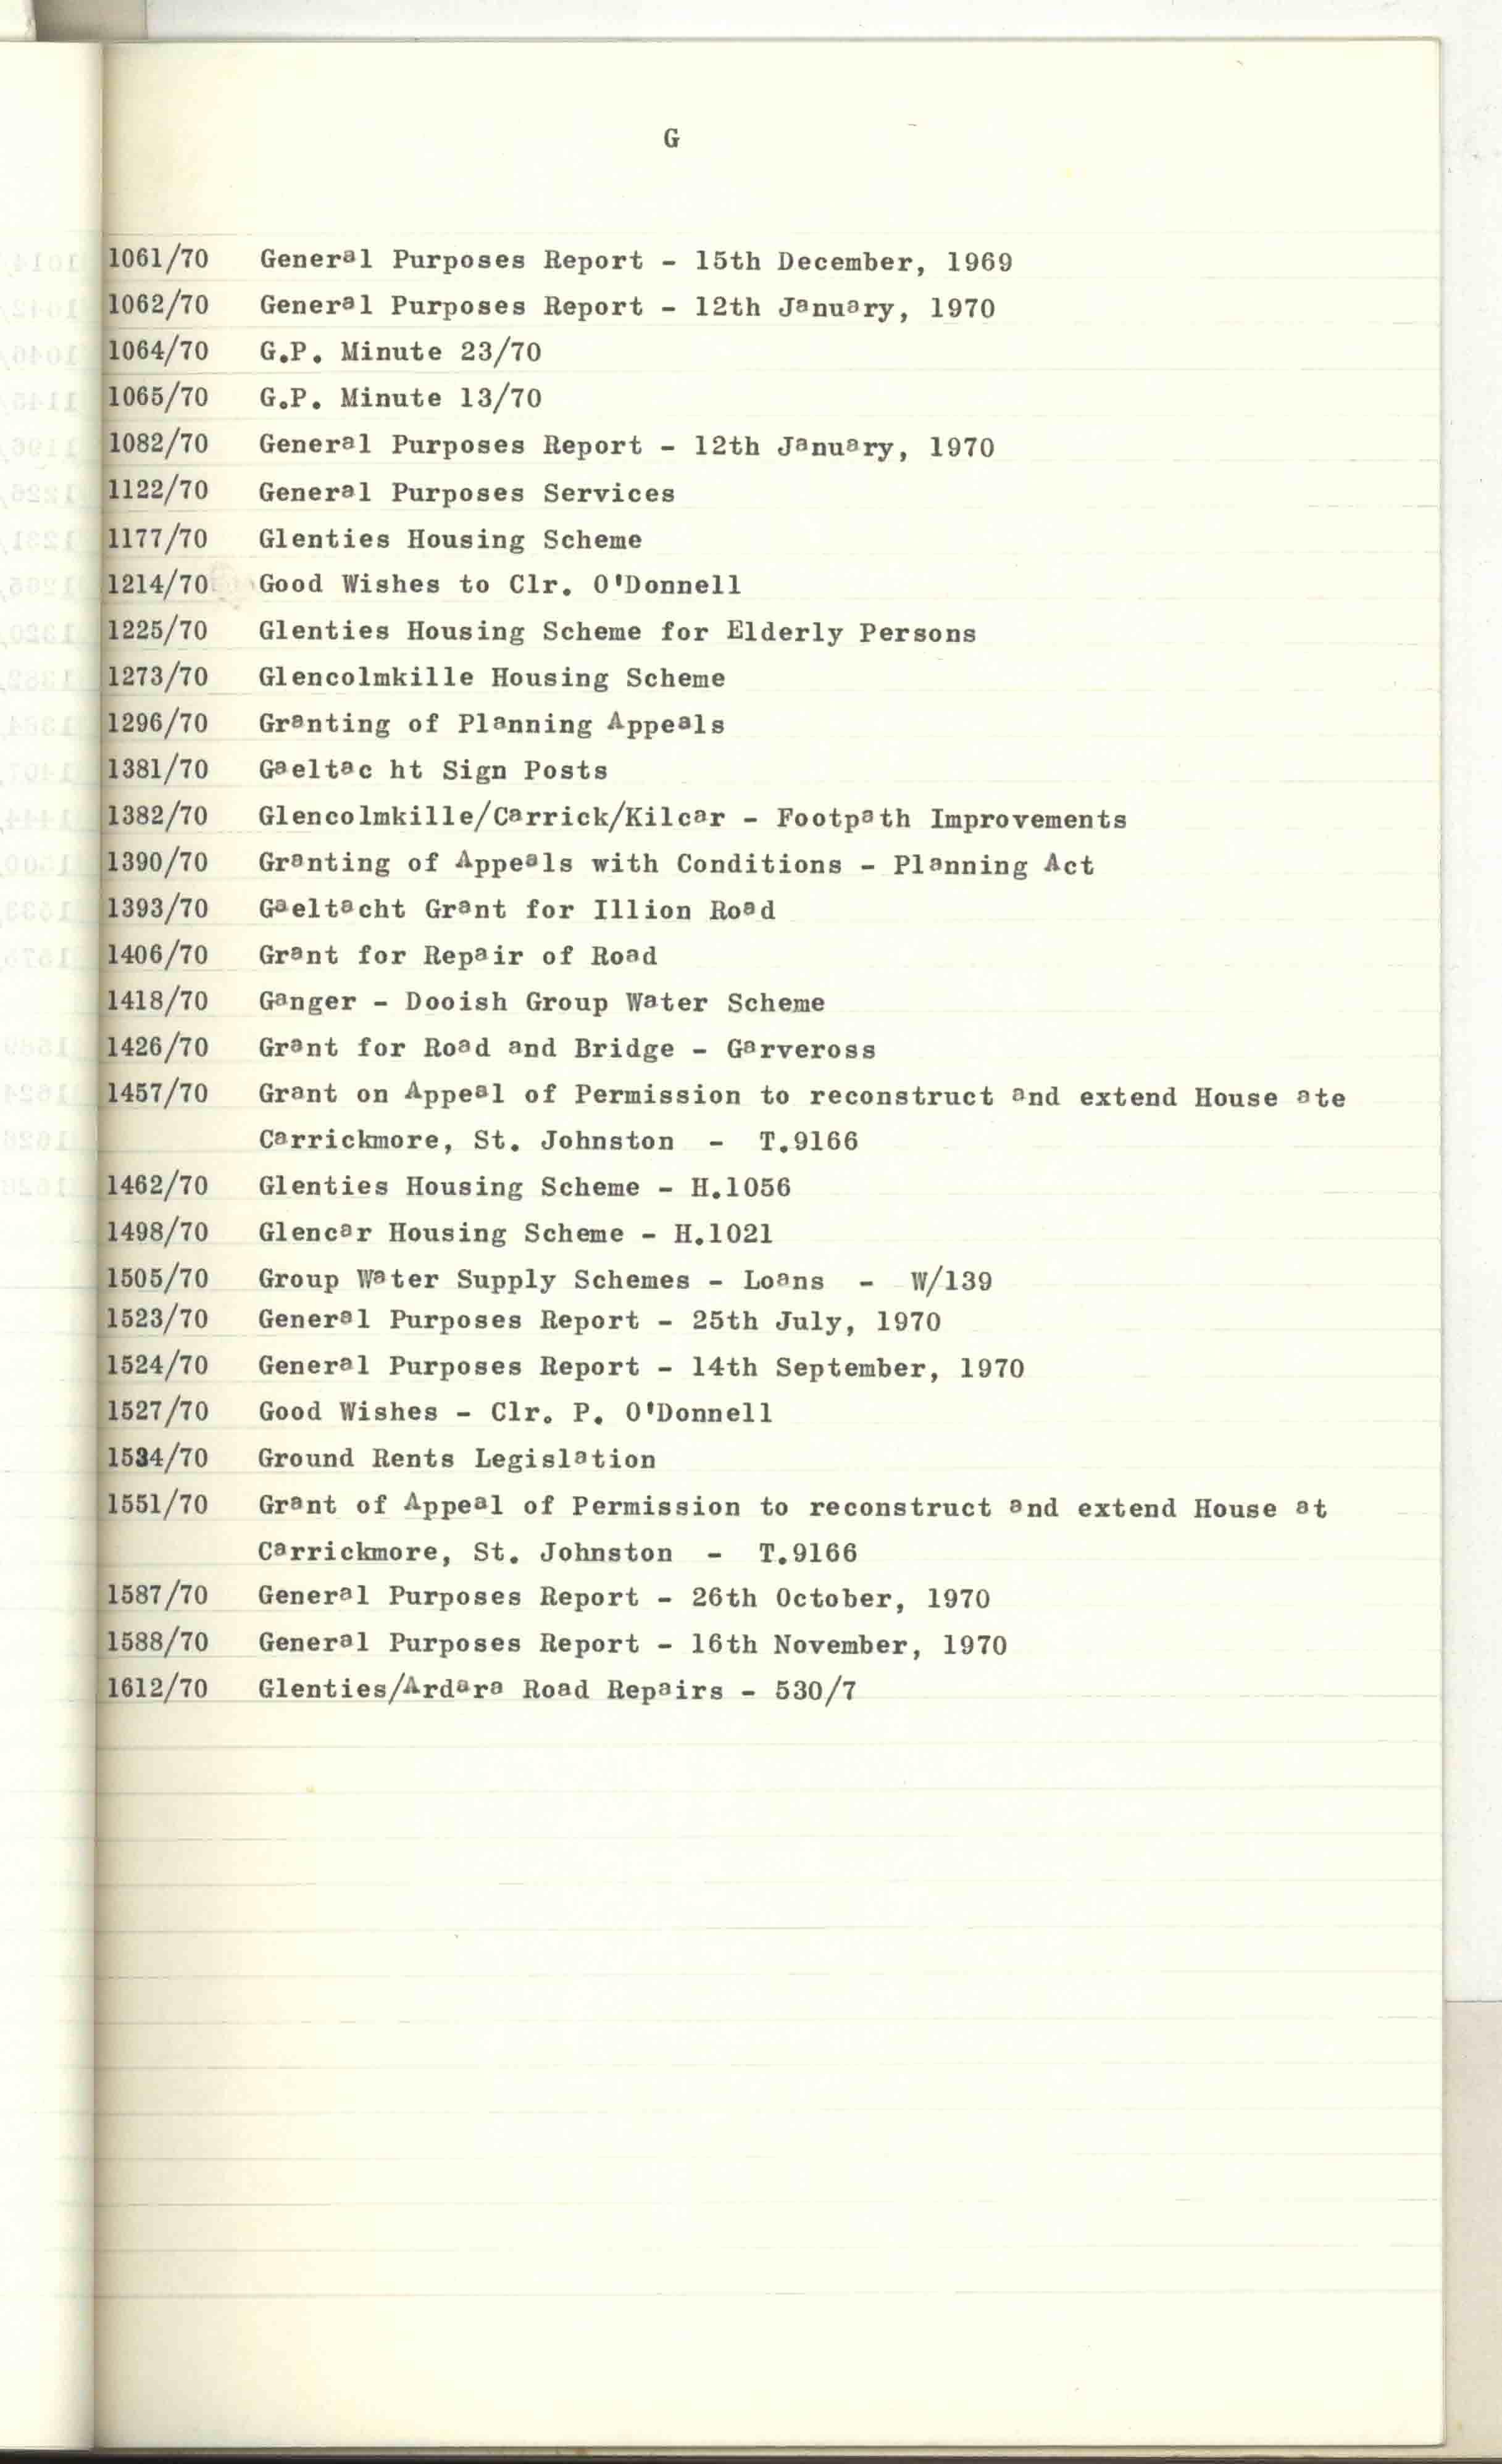 G
1061/70 General Purposes Report - 15th December, 1969
1062/70 General Purposes Report - 12th January, 1970
1064/70 G.P. Minute 23/70
1065/70 G.P. Minute 13/70
1082/70 General Purposes Report - 12th January, 1970
1122/70 General Purposes Services
1177/70 Glenties Housing Scheme
1214/70 Good Wishes to Clr. O'Donnell
1225/70 Glenties Housing Scheme for Elderly Persons
1273/70 Glencolmkille Housing Scheme
1296/70 Granting of Planning Appeals
1381/70 Gaeltac ht Sign Posts
1382/70 Glencolmkille/Carrick/Kilcar - Footpath Improvements
1390/70 Granting of Appeals with Conditions - Planning Act
1393/70 Gaeltacht Grant for Illion Road
1406/70 Grant for Repair of Road
1418/70 Ganger - Dooish Group Water Scheme
1426/70 Grant for Road and Bridge - Garveross
1457/70 Grant on Appeal of Permission to reconstruct and extend House ate
Carrickmore, St. Johnston - T.9166
1462/70 Glenties Housing Scheme - H.1056
1498/70 Glencar Housing Scheme - H.1021
1505/70 Group Water Supply Schemes - Loans - W/139
1523/70 General Purposes Report - 25th July, 1970
1524/70 General Purposes Report - 14th September, 1970
1527/70 Good Wishes - Clr. P. O'Donnell
1534/70 Ground Rents Legislation
1551/70 Grant of Appeal of Permission to reconstruct and extend House at
Carrickmore, St. Johnston - T.9166
1587/70 General Purposes Report - 26th October, 1970
1588/70 General Purposes Report - 16th November, 1970
1612/70 Glenties/Ardara Road Repairs - 530/7